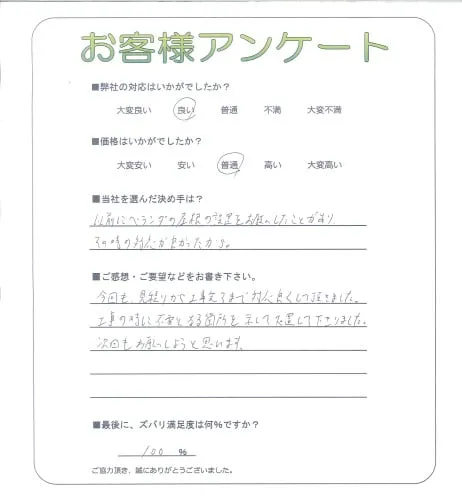 お客様アンケート
■弊社の対応はいかがでしたか？
大変良い 良い 普通 不満 大変不満
■価格はいかがでしたか？
大変安い 安い 普通 高い 大変高い
■当社を選んだ決め手は？
以前にベランダの屋根の設置をお願いしたことがあり
その時の対応が良かったから。
■ご感想・ご要望などをお書き下さい。
今回も、見積りから工事完了まで対応良くして頂きました。
工事の時に不要となる箇所を示して処置して下さりました。
次回もお願いしようと思います。
■最後に、ズバリ満足度は何％ですか？
100 ％
ご協力頂き、誠にありがとうございました。